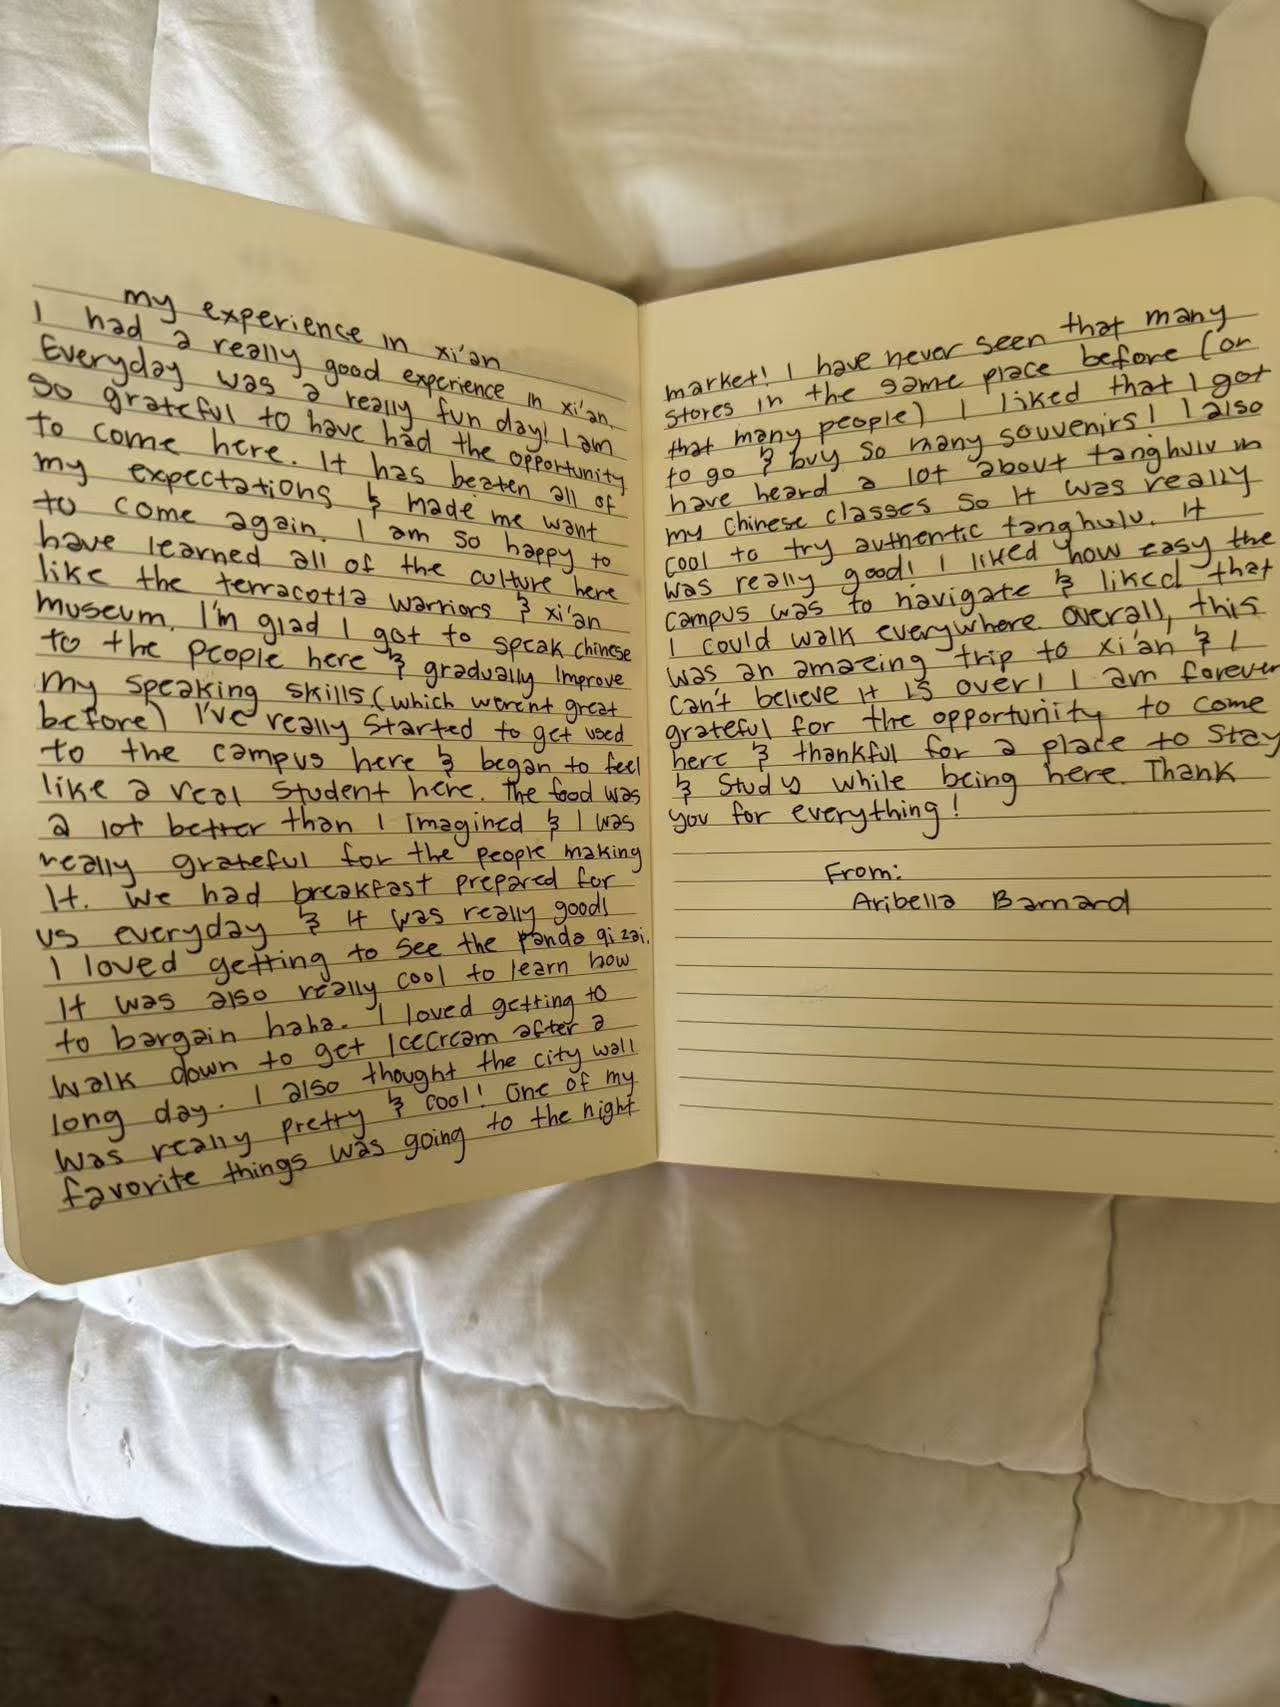 my experience in xi'an
I had a really good experience in xi'an.
Everyday was a really fun day! I am
so grateful to have had the opportunity
to come here. It has beaten all of
my expectations & made me want
to come again. I am so happy to
have learned all of the culture here
like the terracotta warriors & xi'an
museum. I'm glad I got to speak chinese
to the people here & gradually improve
my speaking skills (which weren't great
before) I've really started to get used
to the campus here & began to feel
like a real student here. The food was
a lot better than I imagined & I was
really grateful for the people making
It. We had breakfast prepared for
us everyday & it was really good!
I loved getting to see the panda qi zai.
It was also really cool to learn how
to bargain haha. I loved getting to
walk down to get Icecream after a
long day. I also thought the city wall
was really pretty & cool! One of my
favorite things was going to the night
market! I have never seen that many
stores in the same place before (or
that many people) I liked that I got
to go & buy so many souvenirs! I also
have heard a lot about tanghulu in
my chinese classes so it was really
cool to try authentic tanghulu. It
was really good! I liked how easy the
campus was to navigate & liked that
I could walk everywhere. Overall, this
was an amazing trip to xi'an & I
can't believe it is over! I am forever
grateful for the opportunity to come
here & thankful for a place to stay
& study while being here. Thank
you for everything!
From:
Aribella Barnard